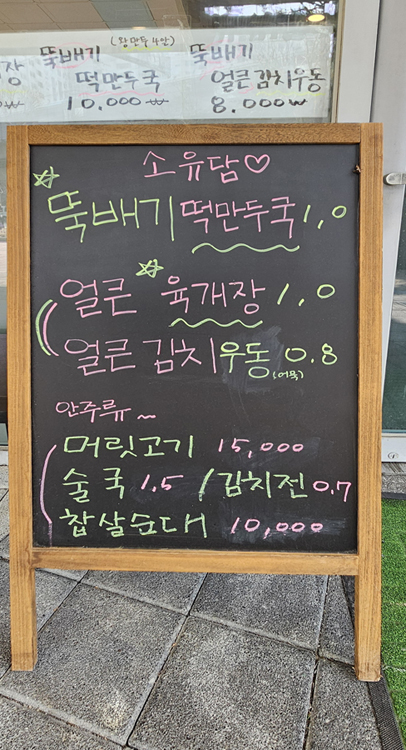 (왕만두 4알)
뚝배기
떡만두국
10.000₩
뚝배기
얼큰김치우동
8.000₩
장
소유담♡
☆
뚝배기 떡만두국 1,0
☆
얼큰 육개장 1,0
얼큰 김치우동 0.8
(어묵)
안주류 ~
머릿고기 15,000
술국 1.5 / 김치전 0.7
찹살순대 10,000